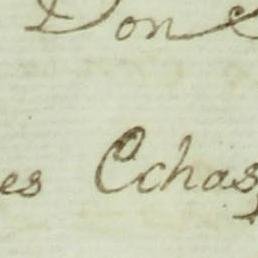 Don
es Echas